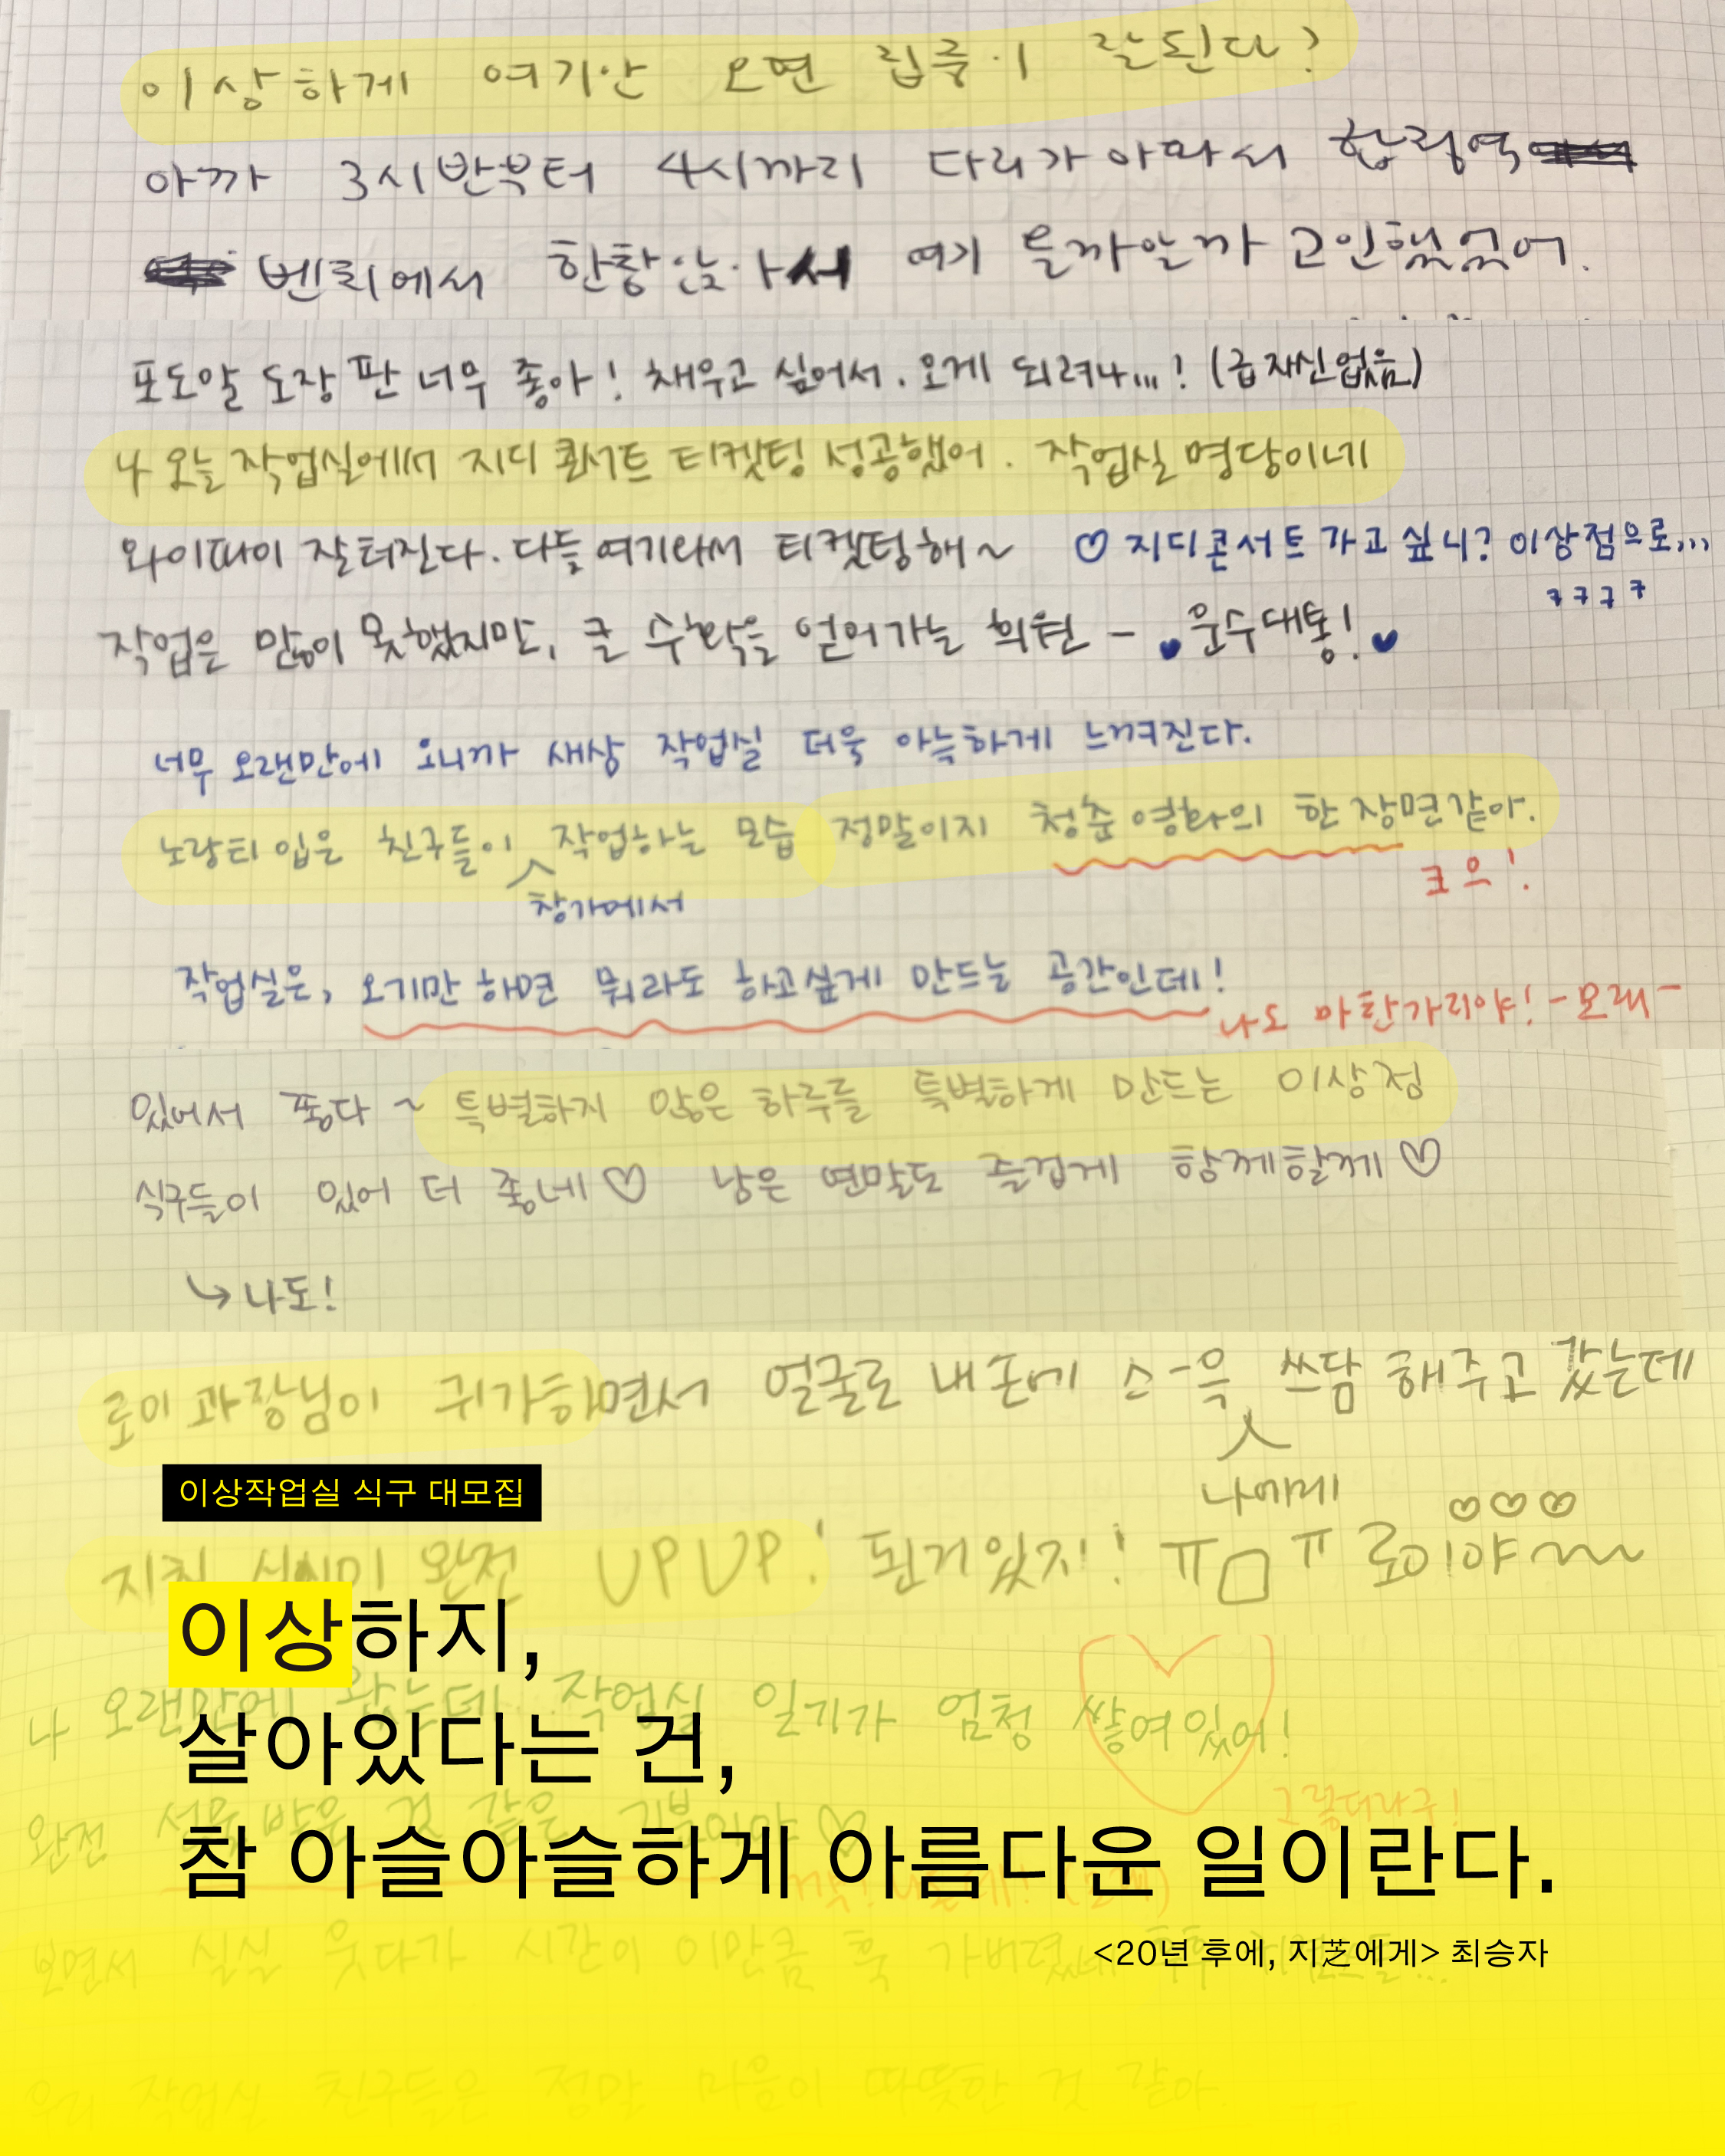 이상하게 여기만 오면 집중이 잘된다?
아까 3시반부터 4시까지 다리가 아파서 합정역
벤치에서 한참 앉아서 여기 올까말까 고민했었어.
포도알 도장 판 너무 좋아! 채우고 싶어서.. 오게 되려나...! (급 자신없음)
나 오늘 작업실에서 지디 콘서트 티켓팅 성공했어. 작업실 명당이네
와이파이 잘터진다. 다들 여기와서 티켓팅해~ ♡ 지디콘서트 가고 싶니? 이상점으로...
ㅋㅋㅋㅋ
작업은 많이 못했지만, 큰 수확을 얻어가는 희원 - ♥운수대통!♥
너무 오랜만에 오니까 새삼 작업실 더욱 아늑하게 느껴진다.
노랑티 입은 친구들이 작업하는 모습 정말이지 청춘 영화의 한 장면같아.
창가에서
크으!
작업실은, 오기만 하면 뭐라도 하고싶게 만드는 공간인데!
나도 마찬가지야! -모래-
있어서 좋다~ 특별하지 않은 하루를 특별하게 만드는 이상점
식구들이 있어 더 좋네♡ 남은 연말도 즐겁게 함께할께♡
↳나도!
로이 과장님이 귀가하면서 얼굴로 내 손에 스-윽 쓰담 해주고 갔는데
나에게
이상작업실 식구 대모집
완전 UPUP! 된거있지! ㅠㅁㅠ 로이야~~ ♡♡♡
이상하지,
나 오랜만에 왔는데.. 작업실 일기가 엄청 쌓여있어!
살아있다는 건,
그렇더라구!
완전 선물 받은 것 같은 기분이야♡
참 아슬아슬하게 아름다운 일이란다.
<20년 후에, 지芝에게> 최승자
보면서 실실 웃다가 시간이 이만큼 훅 가버렸네
우리 작업실 친구들은 정말 마음이 따뜻한 것 같아.